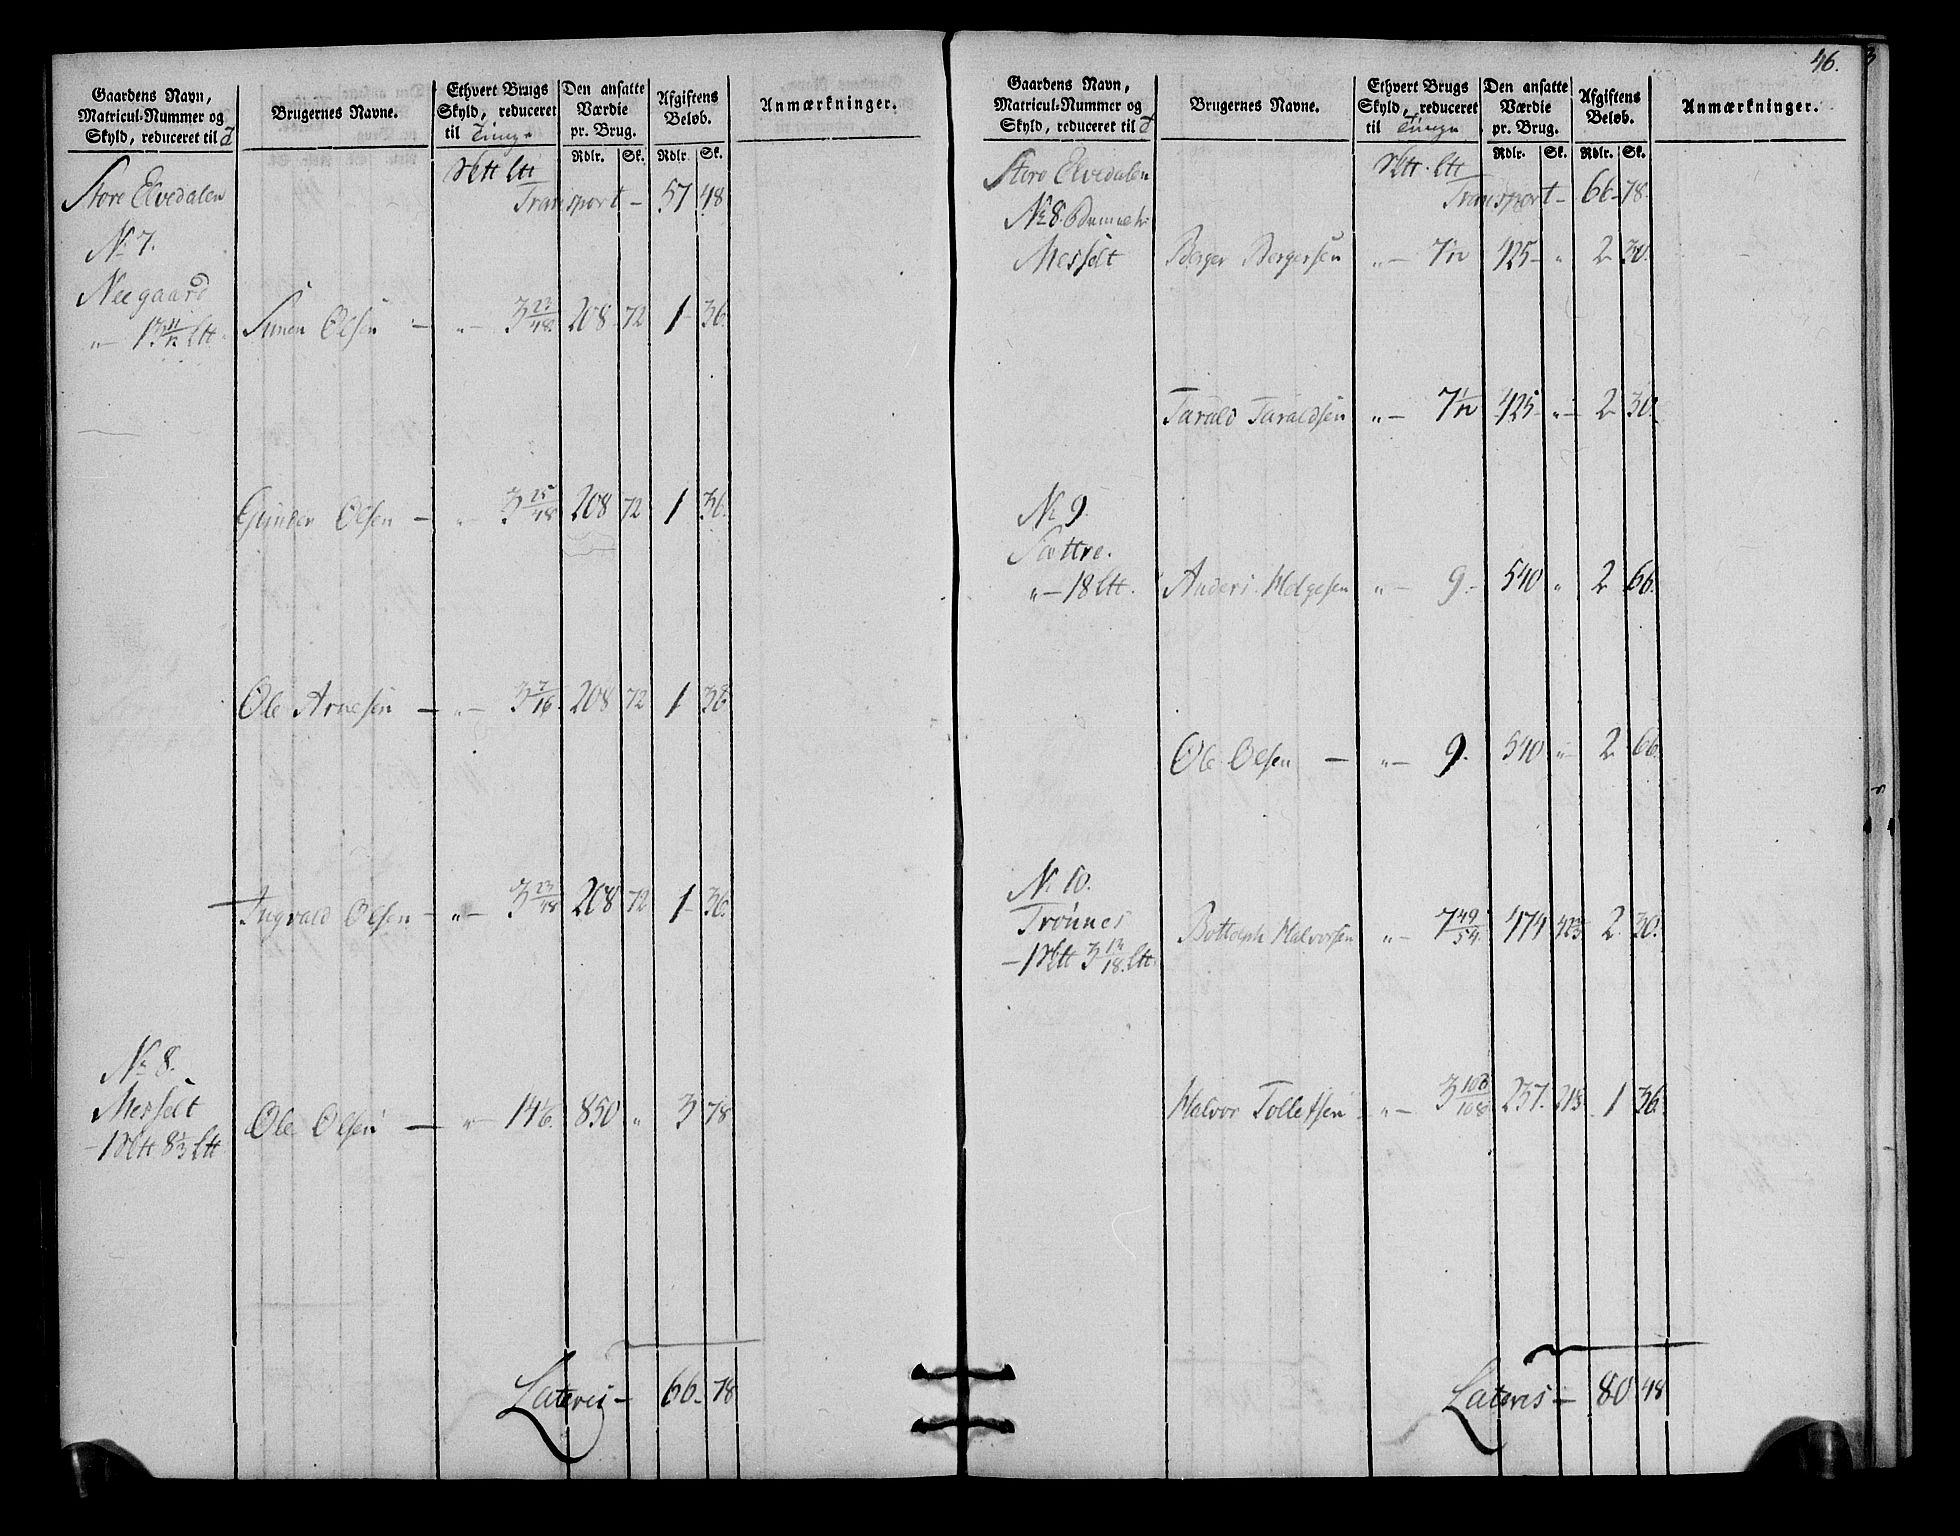 Gaardens Navn,
Matricul-Nummer og
Skyld, reduceret til
Brugernes Navne.
Ethvert Brugs
Skyld, reduceret
til Tunge
Den ansatte
Værdie
pr. Brug.
Rdlr. Sk.
Afgiftens
Beløb.
Rdlr. Sk.
Anmærkninger.
Store Elvedalen
Transport - 57 48
No 7.
Neegaard
" - 13 11/12 ltt
Simen Olsen - " - 3 23/48 208 72 1 36.
Gunder Olsen - " - 3 25/48 208 72 1 36.
Ole Arnesen - " - 3 7/16 208 72 1 36
Ingvald Olsen - " - 3 23/48 208 72 1 36.
No 8.
Messelt
- 1 8 1/3 ltt
Ole Olsen - " - 14 1/6. 850 " 3 78
Lateris - 66. 78
46.
Gaardens Navn,
Matricul-Nummer og
Skyld, reduceret til
Brugernes Navne.
Ethvert Brugs
Skyld, reduceret
til Tunge
Den ansatte
Værdie
pr. Brug.
Rdlr. Sk.
Afgiftens
Beløb.
Rdlr. Sk.
Anmærkninger.
Store Elvedalen
Transport - 66 - 78.
No 8.
Messelt
Berger Bergersen " - 7 1/12 425 - " 2 30.
Tarald Taraldsen " - 7 1/12 425 - " - 2 30.
No 9.
Sættre.
" - 18 ltt.
Anders Helgesen " - 9 - 540 " 2 66.
Ole Olsen - " - 9. 540 " - 2 66.
No 10.
Trønnes
- 1 3 13/18 ltt.
Bottolph Halvorsen " - 7 49/54. 474 2. 30.
Halvor Tolletsen " - 3 103/108 237. 1 36.
Lateris - 80 48